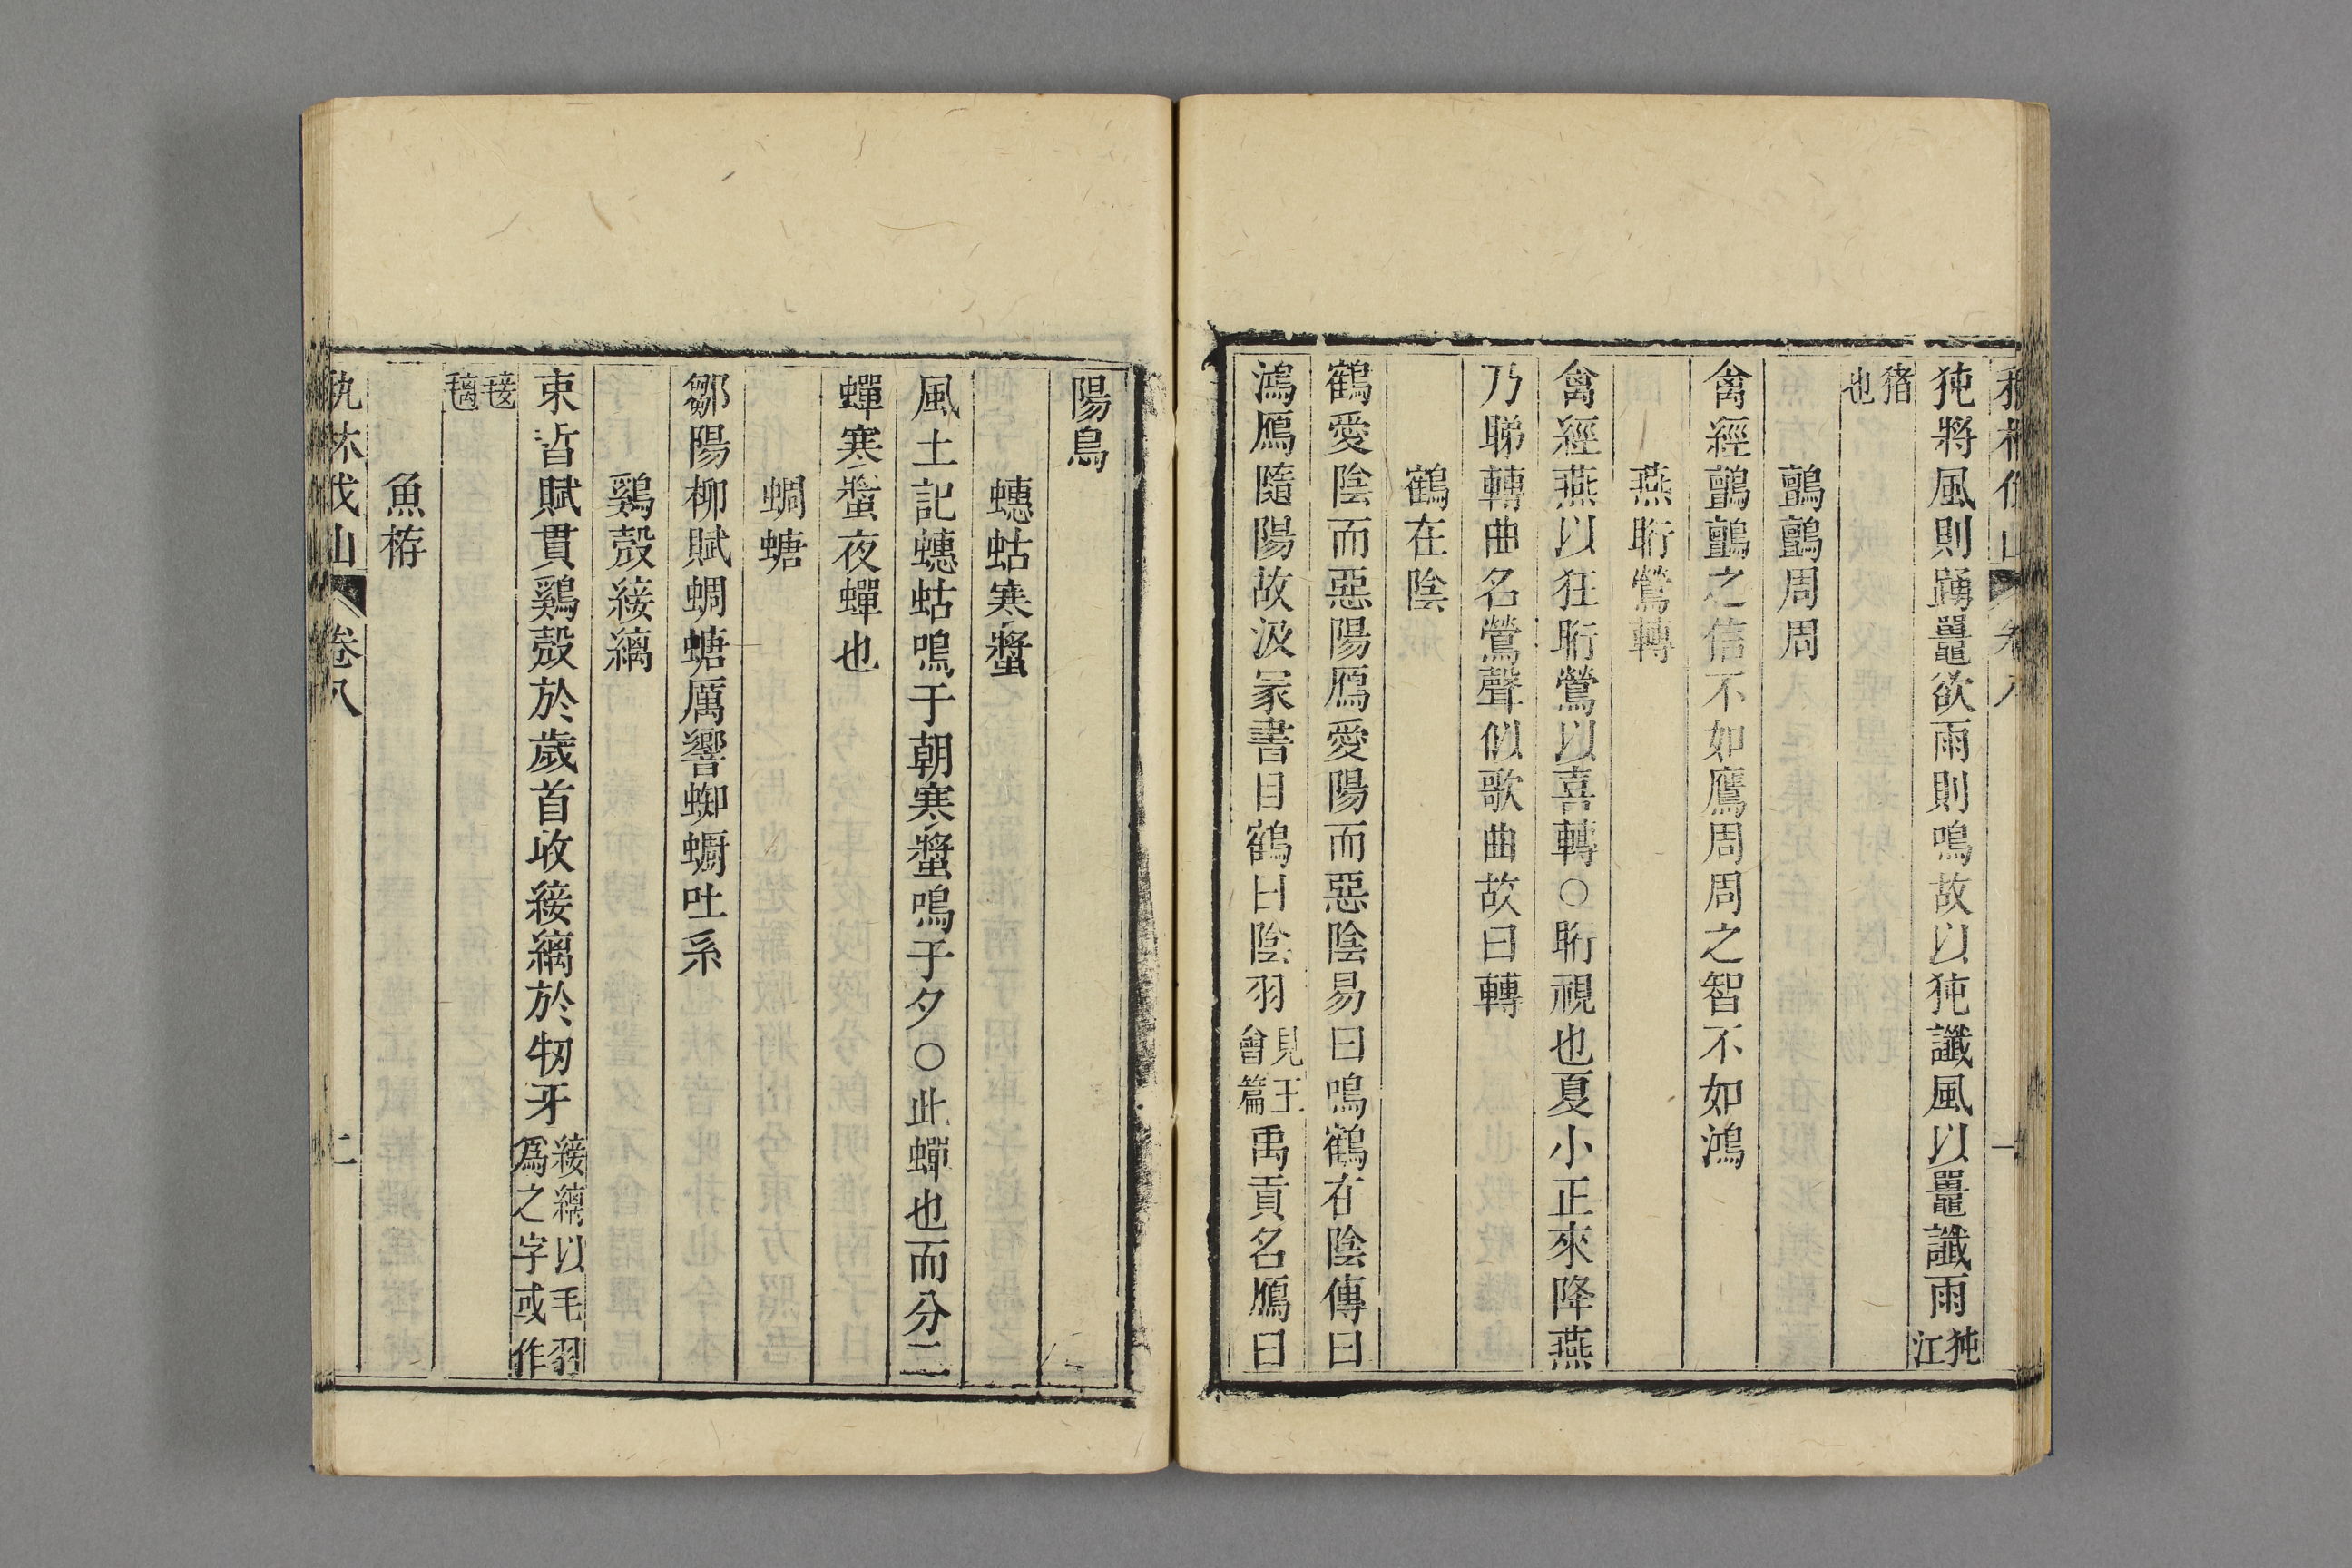 犆將風則踴鼉欲雨則鳴故以㹠讖風以鼉讖雨㹠江
猪也
鸇鸇周周
禽經鸇鸇之信不如鷹周周之智不如鴻
燕䀪鶯轉
禽經燕以狂䀪鶯以喜轉○䀪視也夏小正來降燕
乃睇轉曲名鶯聲似歌曲故曰轉
鶴在陰
鶴愛陰而惡陽鴈愛陽而惡陰易曰鳴鶴在陰傳曰
鴻鴈隨陽故汲冢書目鶴曰陰羽見王會篇禹貢名鴈曰
陽鳥
蟪蛄寒螿
風土記蟪蛄鳴于朝寒螿鳴于夕○此蟬也而分二
蟬寒螿夜蟬也
蜩螗
鄒陽柳賦蜩螗厲響蜘蟵吐糸
雞殼緌縭
束晳賦貫雞殼於歲首收緌縭於牣牙緌縭以毛羽爲之字或作
魚栫
秇林伐山 卷八